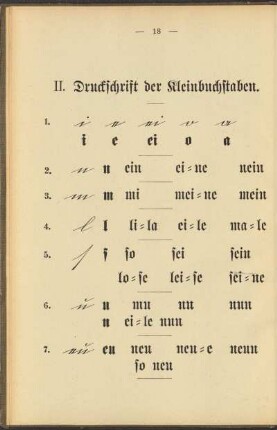 — 18 —
II. Druckschrift der Kleinbuchstaben.
1. i e ei o a
i e ei o a
2. n n ein ei=ne nein
3. m m mi mei=ne mein
4. l l li=la ei=le ma=le
5. ſ ſ ſo ſei ſein
lo=ſe lei=ſe ſei=ne
6. u u mu nu nun
u ei=le nun
7. eu eu neu neu=e neun
ſo neu